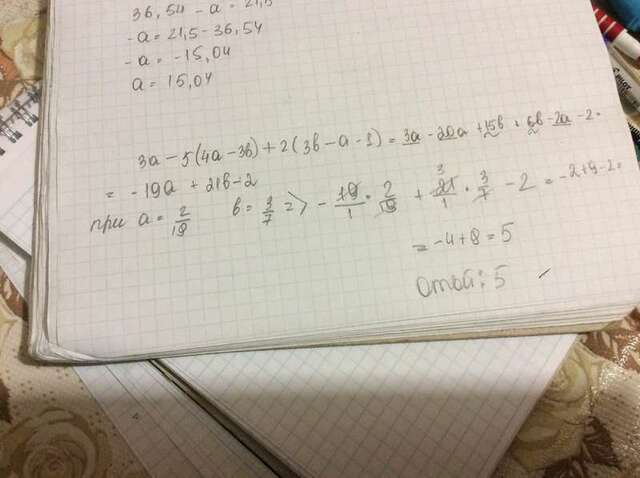 36,54 - a = 21,5
-a = 21,5 - 36,54
-a = -15,04
a = 15,04
3a - 5(4a - 3b) + 2(3b - a - 1) = 3a - 20a + 15b + 6b - 2a - 2 =
= -19a + 21b - 2
при a = 2/19 b = 3/7 => - 19/1 · 2/19 + 21/1 · 3/7 - 2 = -2 + 9 - 2 =
3
= -4 + 9 = 5
Ответ: 5